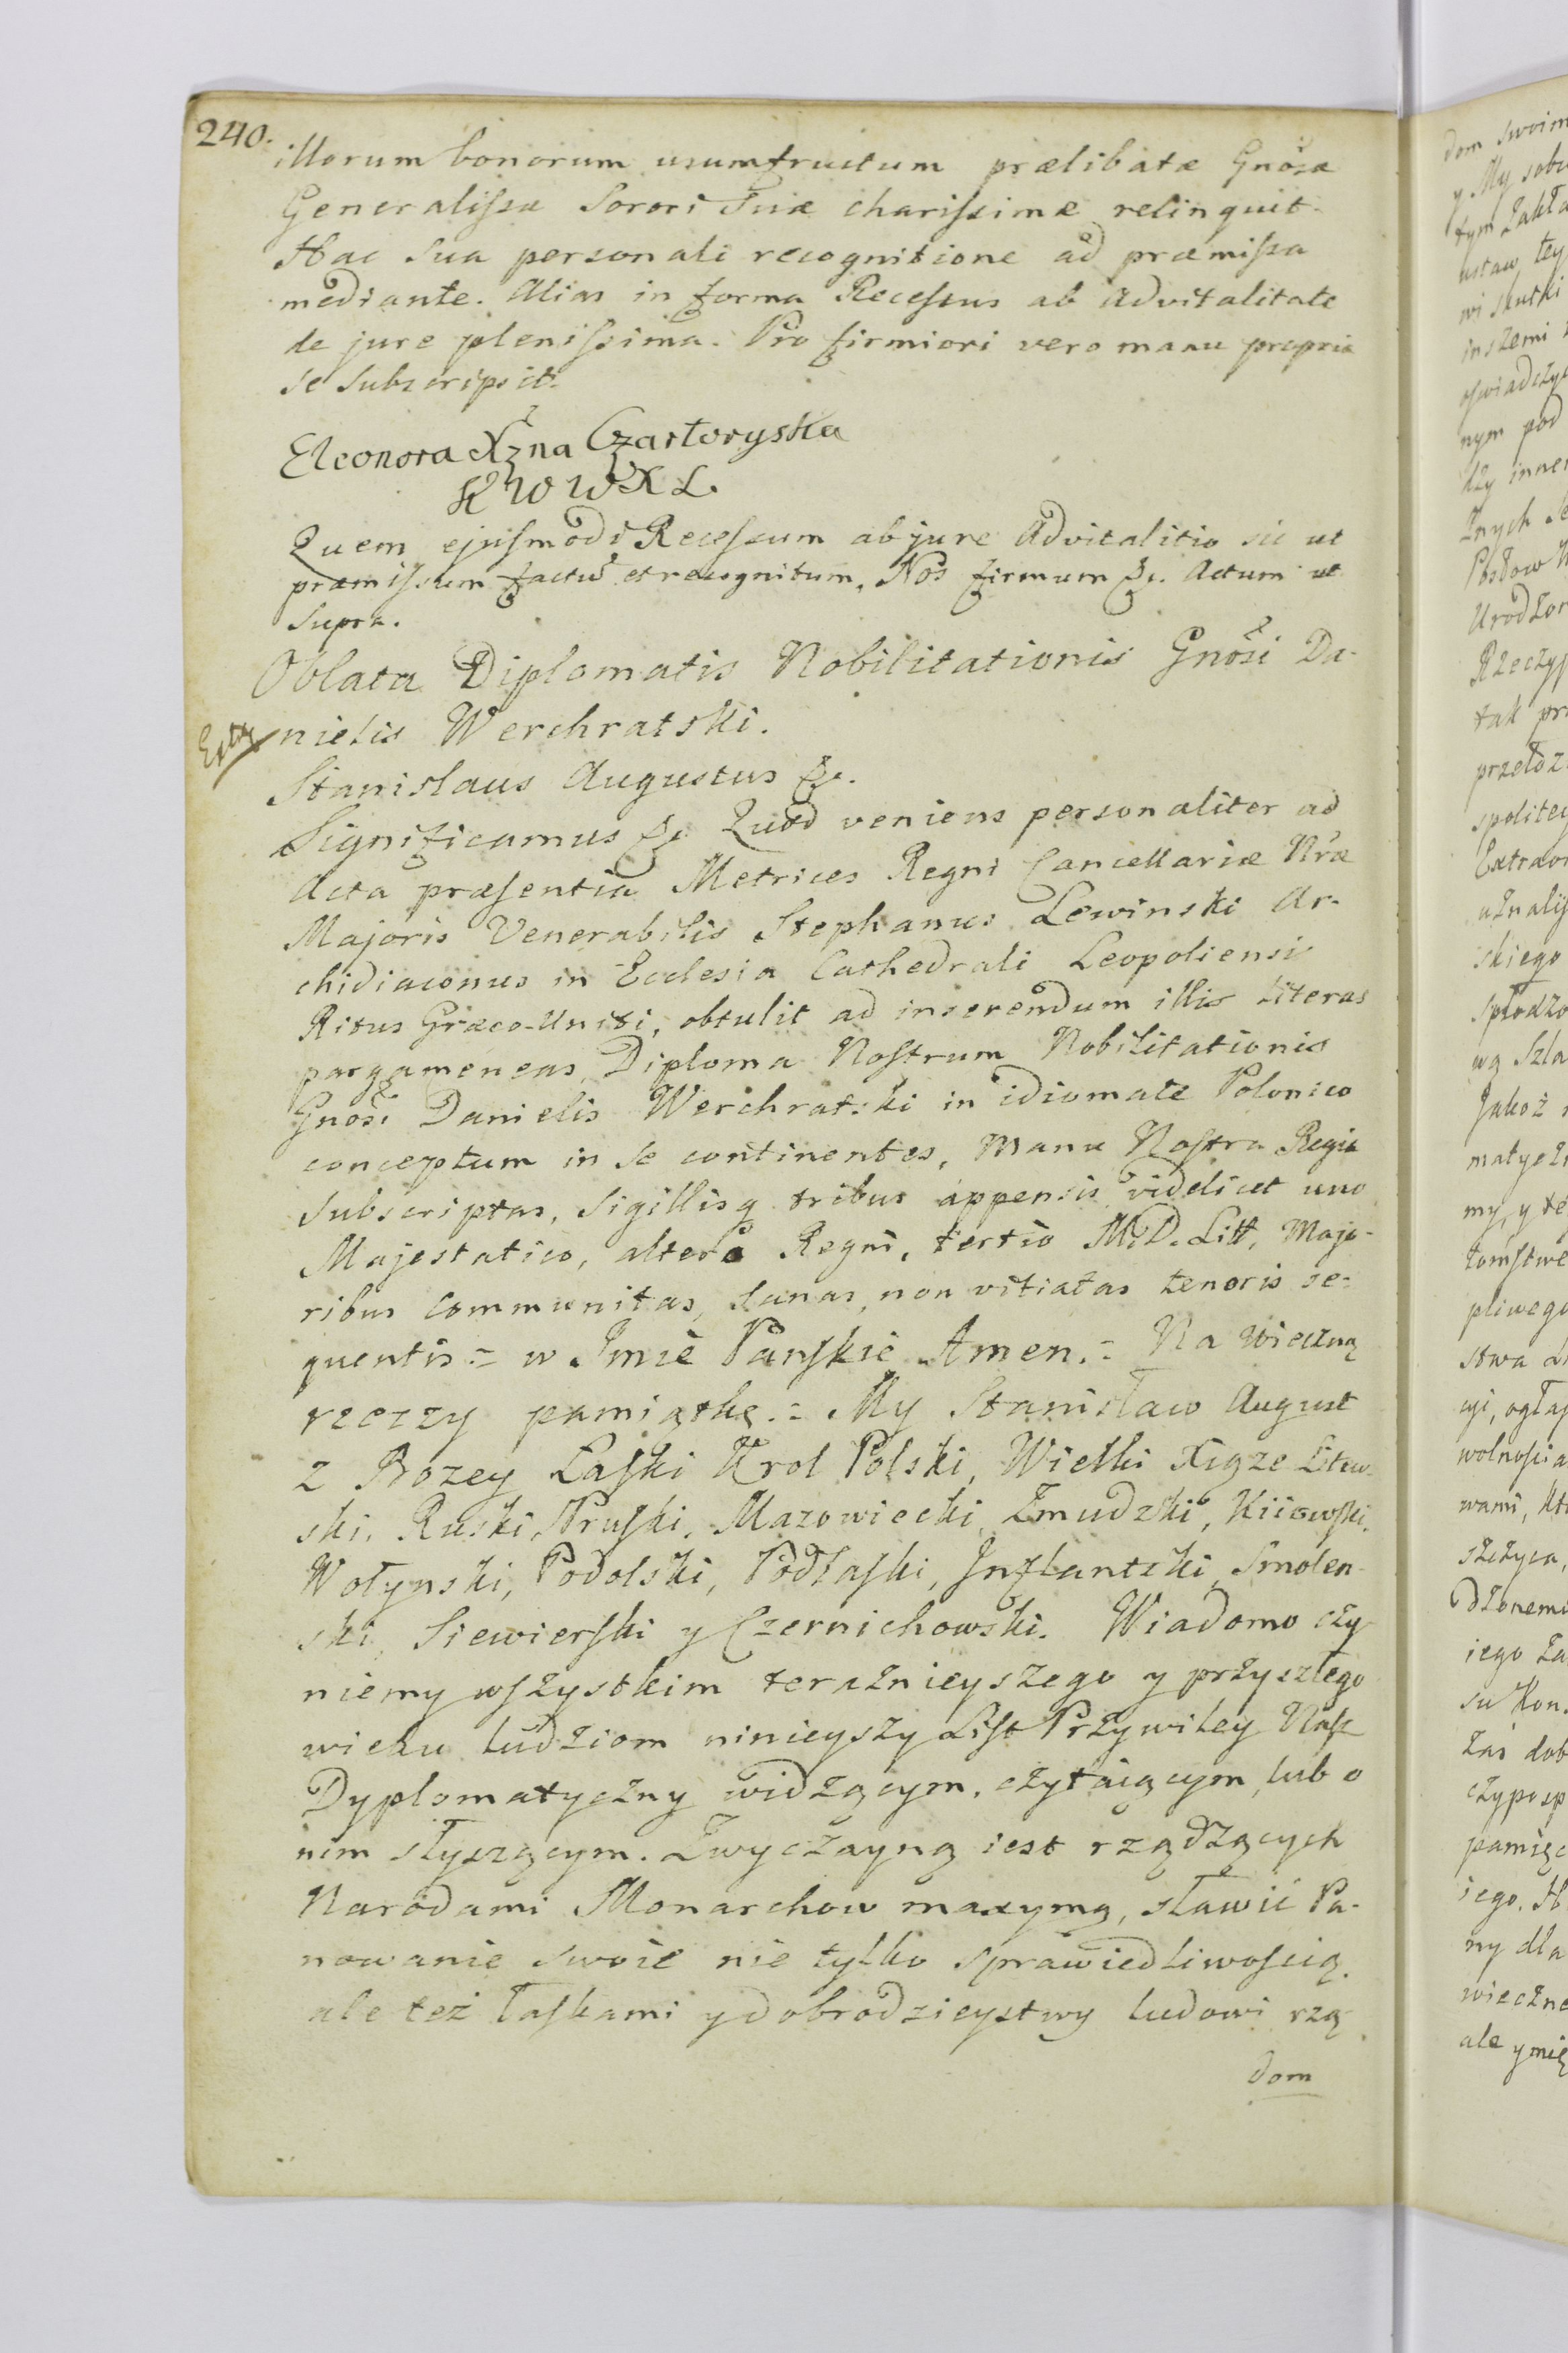 240.
illorum bonorum usumfructum prælibatæ Gnosæ
Generalissæ Sorori Suæ charissimæ relinquit.
Hac sua personali recognitione ad præmissa
mediante. Alias in forma Recessus ab Advitalitate
de jure plenissima. Pro firmiori vero manu propria
se subscripsit.
Eleonora Xżna Czartoryska
K W W X L.
Quem ejusmodi Recessum ab jure Advitalitio sic ut
præmissum factũ et recognitum, Nos firmum &c. Actum ut
Supra.
Oblata Diplomatis Nobilitationis Gnosi Da-
Extr nielis Werchratski.
Stanislaus Augustus &c.
Significamus &c Quod veniens personaliter ad
Acta præsentia Metrices Regni Cancellariæ Nræ
Majoris Venerabilis Stephanus Lewinski Ar-
chidiaconus in Ecclesia Cathedrali Leopoliensi
Ritus Græco-Uniti, obtulit ad inserendum illis literas
pargameneas, Diploma Nostrum Nobilitationis
Gnosi Danielis Werchratski in idiomate Polonico
conceptum in se continentes, Manu Nostra Regia
subscriptas, Sigillisq tribus appensis videlicet uno
Majestatico, altero Regni, tertio M. D. Litt, Majo-
ribus communitas, sanas, non vitiatas tenoris se-
quentis.= w Jmie Panskie Amen.= Na wieczną
rzeczy pamiątkę.= My Stanisław August
z Bozey Łaski Krol Polski, Wielki Xiąże Litew-
ski, Ruski, Pruski, Mazowiecki, Zmudzki, Kiiowski,
Wołynski, Podolski, Podlaski, Jnflantski, Smolen-
ski, Siewierski y Czernichowski. Wiadomo czy-
niemy wszystkim teraznieyszego y przyszłego
wieku ludziom ninieyszy List Przywiley Nasz
Dyplomatyczny widzącym, czytaiącym, lub o
nim słyszącym. Zwyczayną iest rządzących
Narodami Monarchow maxymą, sławić Pa-
nowanie swoie nie tylko sprawiedliwoscią,
ale też łaskami y dobrodzieystwy ludowi rzą
dom
dom swoim
y My
tym
ustaw tey
wi skutki
inszemi
oswiadczy
nym pod
dzy inne
znych
Posłow
Urodzon
Rzeczyp
tak
przełoz
spolitey
Extraor
uznalis
skiego
spłodzo
Szla
Jakoż
matyczn
my, y te
tomstwe
pliwego
stwa
cyi, ogłas
wolnosci a
wami,
szczyca,
dzonemu
iego za
su Kon
zas dob
czyposp
pamięc
iego.
ny dla
wieczne
ale y mię